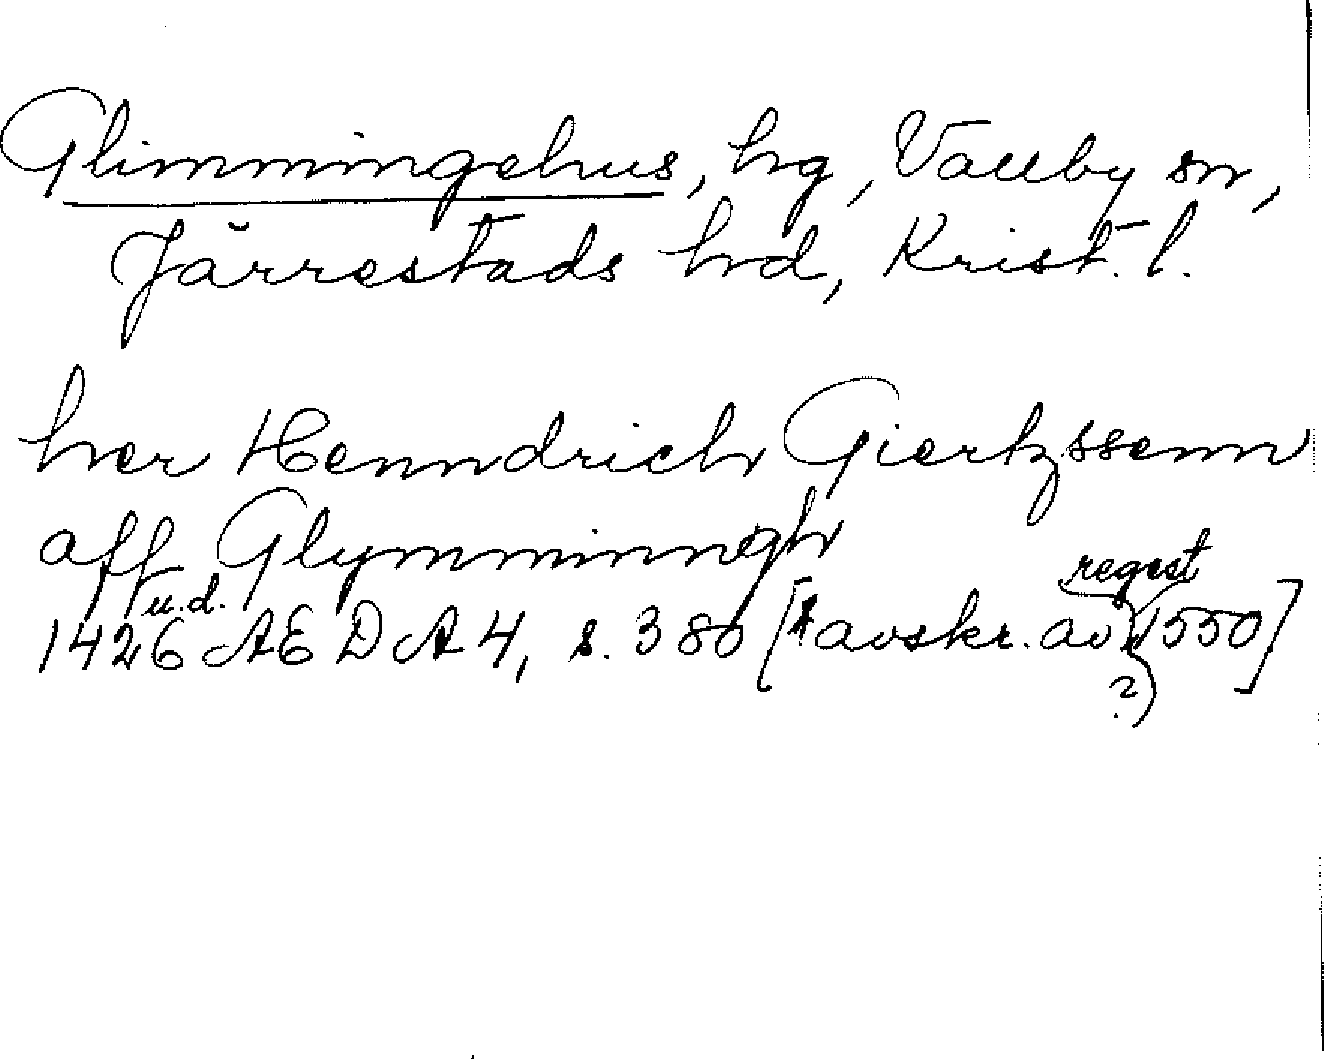 Glimmingehus, hg, Vallby sn,
Järrestads hd, Krist. l.
her Henndrich Giertzssenn
aff Glymminngh
u.d. regest
1426 AEDA 4, s. 380 [avskr. av 1550]
?)